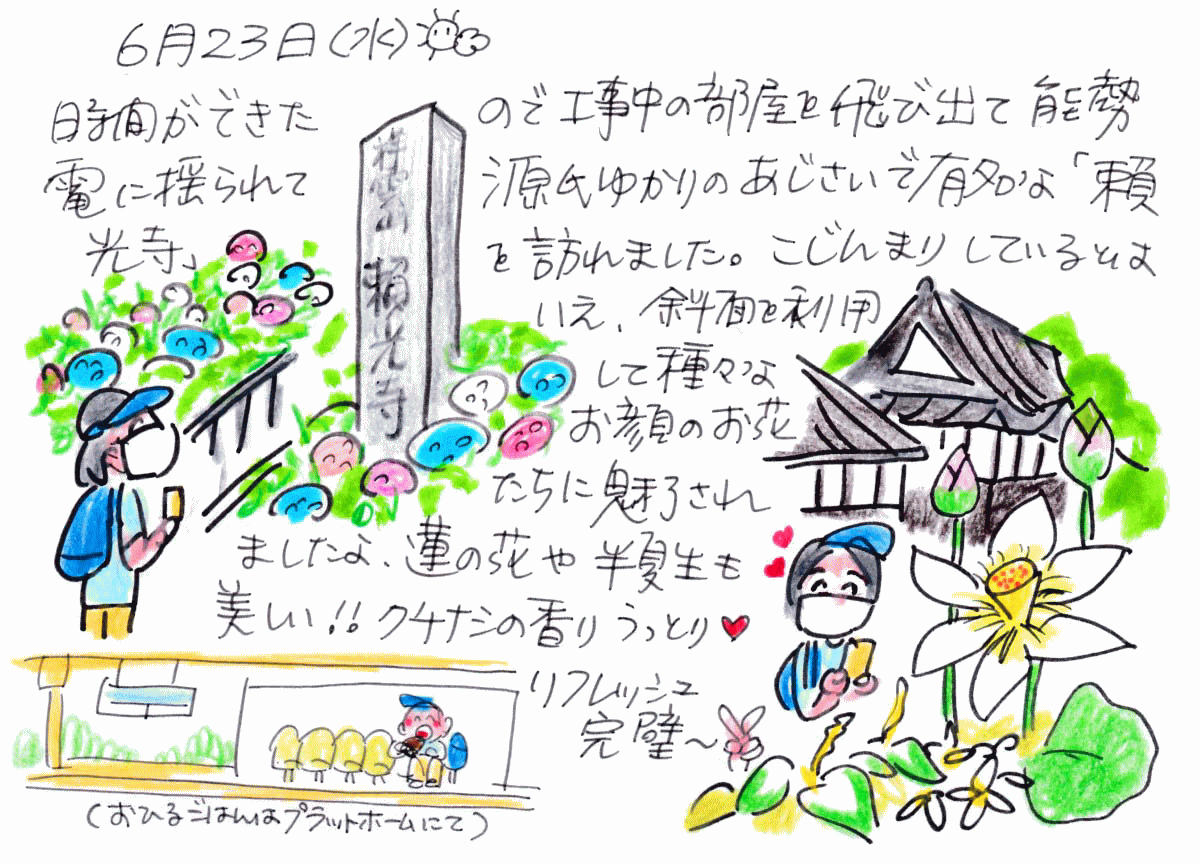 6月23日(水)
時間ができたので工事中の部屋を飛び出て能勢
電に揺られて源氏ゆかりのあじさいで有名な「頼
光寺」を訪れました。こじんまりしているとは
いえ、斜面を利用
して種々な
お顔のお花
たちに魅了され
ましたよ、蓮の花や半夏生も
美しい!!クチナシの香りうっとり♥
リフレッシュ
完璧〜
頼光寺
(おひるごはんはプラットホームにて)